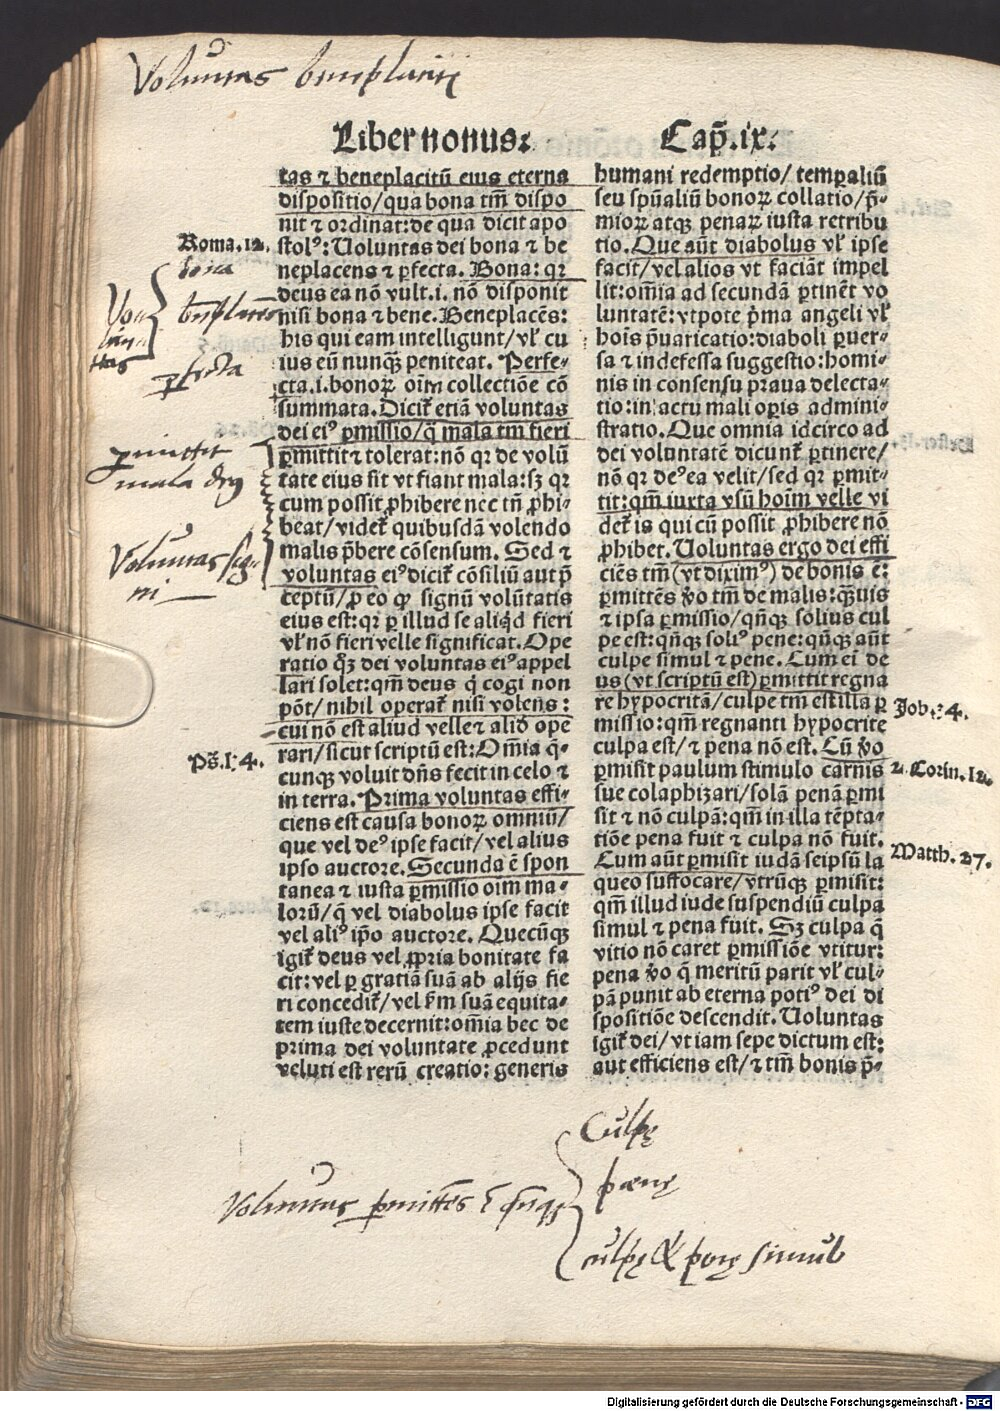 Voluntas beneplaciti
Liber nonus: Cap̃.ix:
tas ⁊ beneplacitũ eius eterna
dispositio/ qua bona tm̃ dispo
nit ⁊ ordinat: de qua dicit apo
stolꝰ: Uoluntas dei bona ⁊ be
neplacens ⁊ ꝑfecta. Bona: qꝛ
deus ea nõ vult .i. nõ disponit
nisi bona ⁊ bene. Beneplacẽs:
his qui eam intelligunt/ vl̕ cu
ius eũ nunqꝫ peniteat. Perfe⸗
cta .i. bonoꝝ oĩm collectiõe cõ
summata. Dicit̃ etiã voluntas
dei eiꝰ ꝑmissio/ q̃ mala tm̃ fieri
ꝑmittit ⁊ tolerat: nõ qꝛ de volũ
tate eius fit vt fiant mala: sꝫ qꝛ
cum possit ꝓhibere nec tñ ꝓhi⸗
beat/ videt̃ quibusdã volendo
malis p̃bere cõsensum. Sed ⁊
voluntas eiꝰ dicit̃ cõsiliũ aut p̃
ceptũ/ ꝓ eo ꝙ signũ volũtatis
eius est: qꝛ ꝑ illud se aliq̃d fieri
vl̕ nõ fieri velle significat. Ope
ratio qꝫ dei voluntas eiꝰ appel
lari solet: qm̃ deus q̃ cogi non
põt/ nihil operat̃ nisi volens:
cui nõ est aliud velle ⁊ aliđ ope
rari/ sicut scriptũ est: Oĩa q̃⸗
cunqꝫ voluit dñs fecit in celo ⁊
in terra. Prima voluntas effi⸗
ciens est causa bonoꝝ omniũ/
que vel deꝰ ipse facit/ vel alius
ipso auctore. Secunda ẽ spon
tanea ⁊ iusta ꝑmissio oĩm ma⸗
lorũ/ q̃ vel diabolus ipse facit
vel aliꝰ ip̃o auctore. Quecũqꝫ
igit̃ deus vel ꝓpria bonitate fa
cit: vel ꝑ gratiã suã ab alijs fie
ri concedit̃/ vel ẜm suã equita⸗
tem iuste decernit: oĩa hec de
prima dei voluntate ꝓcedunt
veluti est rerũ creatio: generis
humani redemptio/ tempaliũ
seu spũaliũ bonoꝝ collatio/ p̃⸗
mioꝝ atqꝫ penaꝝ iusta retribu
tio. Que aũt diabolus vl̕ ipse
facit/ vel alios vt faciãt impel
lit: oĩa ad secundã ꝑtinẽt vo
luntatẽ: vtpote p̃ma angeli vl̕
hoĩs p̃uaricatio: diaboli ꝑuer⸗
sa ⁊ indefessa suggestio: homi⸗
nis in consensu praua delecta⸗
tio: in actu mali oꝑis admini⸗
stratio. Que omnia idcirco ad
dei voluntatẽ dicunt̃ ꝑtinere/
nõ qꝛ deꝰ ea velit/ sed qꝛ ꝑmit⸗
tit: qm̃ iuxta vsũ hoĩm velle vi
det̃ is qui cũ possit ꝓhibere nõ
ꝓhibet. Uoluntas ergo dei effi
ciẽs tm̃ (vt diximꝰ) de bonis ẽ:
ꝑmittẽs ꝟo tm̃ de malis: qꝫuis
⁊ ipsa ꝑmissio/ qñqꝫ solius cul
pe est: qñqꝫ soliꝰ pene: qñqꝫ aũt
culpe simul ⁊ pene. Cum eĩ de
us (vt scriptũ est) ꝑmittit regna
re hypocritã/ culpe tm̃ est illa ꝑ
missio: qm̃ regnanti hypocrite
culpa est/ ⁊ pena nõ est. Cũ ꝟo
ꝑmisit paulum stimulo carnis
sue colaphizari/ solã penã ꝑmi
sit ⁊ nõ culpã: qm̃ in illa tẽpta⸗
tiõe pena fuit ⁊ culpa nõ fuit.
Cum aũt ꝑmisit iudã seipsũ la
queo suffocare/ vtrũqꝫ ꝑmisit:
qm̃ illud iude suspendiũ culpa
simul ⁊ pena fuit. Sꝫ culpa q̃
vitio nõ caret ꝑmissiõe vtitur:
pena ꝟo q̃ meritũ parit vl̕ cul⸗
pã punit ab eterna potiꝰ dei di
spositiõe descendit. Uoluntas
igit̃ dei/ vt iam sepe dictum est:
aut efficiens est/ ⁊ tm̃ bonis p̃⸗
Roma. 12.
bona
Voluntas
perfecta
permittit
mala
Voluntas sig⸗
ni
Ps̃. 134.
Job. 34.
2. Corin. 12.
Matth. 27.
Culpę
pænę
Voluntas permittẽs ẽ qñqꝫ
culpę & penę simul
Digitalisierung gefördert durch die Deutsche Forschungsgemeinschaft - DFG